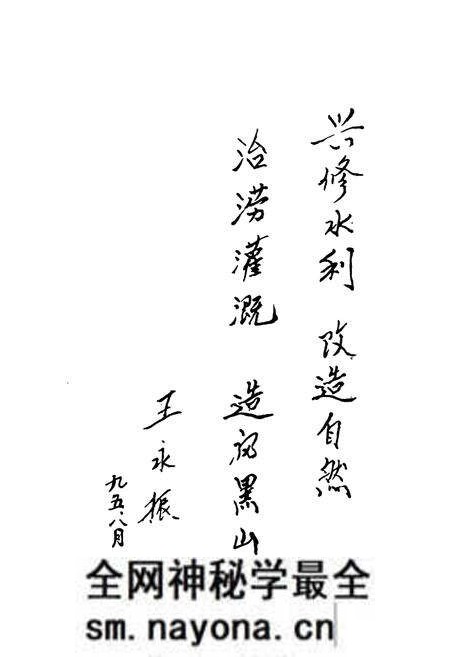 兴修水利 改造自然
治涝灌溉 造福黑山
王永振
九五.八月
全网神秘学最全
sm.nayona.cn